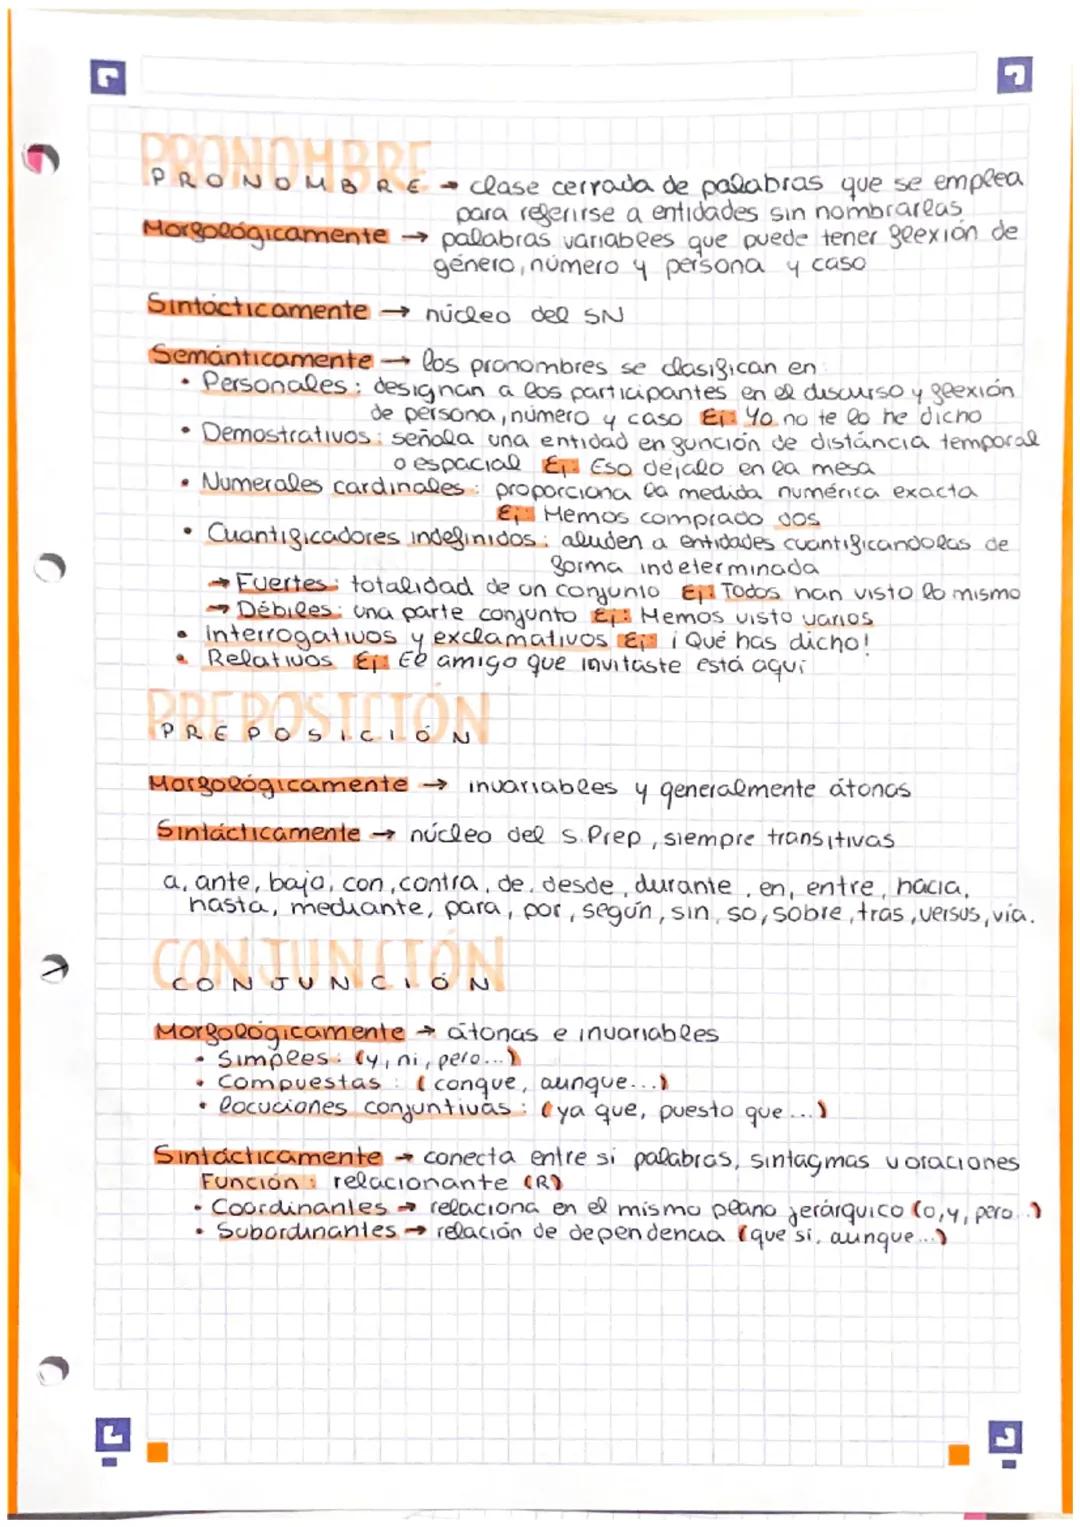 PRONOMBRE
PRONOMBRE → clase cerrada de palabras que se emplea
para referirse a entidades sin nombrarlas
Morfológicamente → palabras variables que puede tener flexión de
género, número y persona y caso
Sintácticamente → núcleo del SN
Semánticamente → los pronombres se clasifican en:
• Personales: designan a los participantes en el discurso y flexión
de persona, número y caso Ej: Yo no te lo he dicho
• Demostrativos: señala una entidad en función de distáncia temporal
o espacial Ej: Eso déjalo en la mesa
• Numerales cardinales: proporciona la medida numérica exacta
Ej: Hemos comprado dos
• Cuantificadores indefinidos: aluden a entidades cuantificandolas de
forma indeterminada
→ Fuertes: totalidad de un conjunto Ej: Todos han visto lo mismo
→ Débiles: una parte conjunto Ej: Hemos visto varios
• Interrogativos y exclamativos Ej: ¡Qué has dicho!
• Relativos Ej: El amigo que invitaste está aquí
PREPOSICIÓN
PREPOSICIÓN
Morfológicamente → invariables y generalmente átonas
Sintácticamente → núcleo del S.Prep, siempre transitivas
a, ante, bajo, con, contra, de, desde, durante, en, entre, hacia,
hasta, mediante, para, por, según, sin, so, sobre, tras, versus, vía.
CONJUNCIÓN
CONJUNCIÓN
Morfológicamente → átonas e invariables
• Simples: (y, ni, pero...)
• Compuestas: (conque, aunque...)
• locuciones conjuntivas: (ya que, puesto que...)
Sintácticamente → conecta entre si palabras, sintagmas u oraciones
Función: relacionante (R)
• Coordinantes → relaciona en el mismo plano jerárquico (o, y, pero...)
• Subordinantes → relación de dependencia (que si, aunque...)